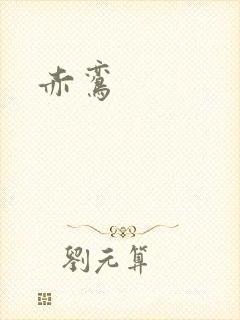 赤鸾
劉元算